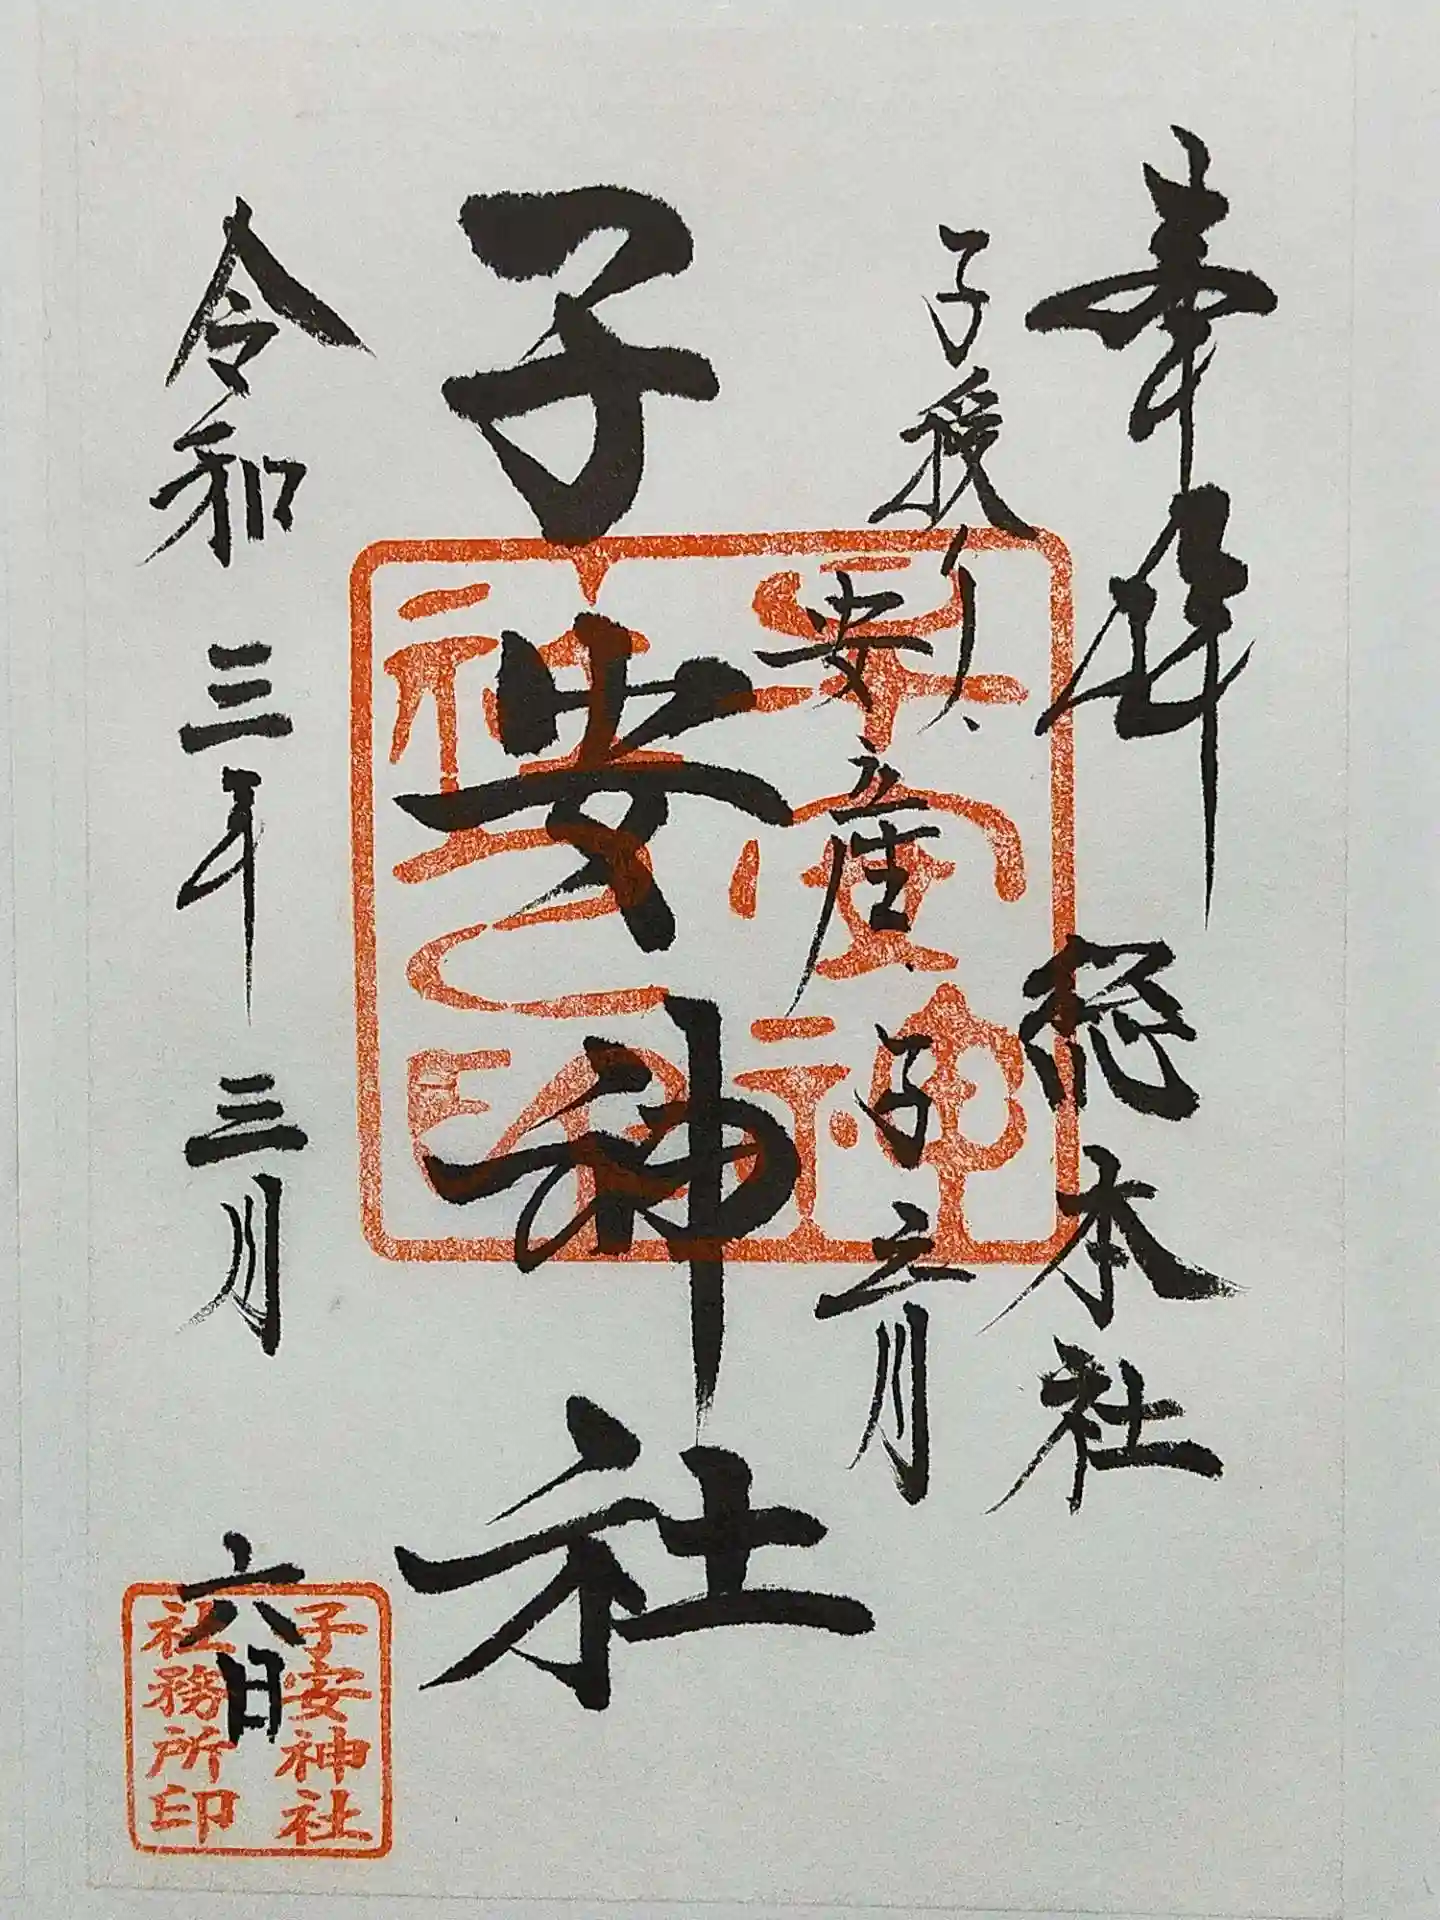 奉拝 総本社
子授け、安産、子育
子安神社
令和三年三月六日
社之印
子安神社
社務所印